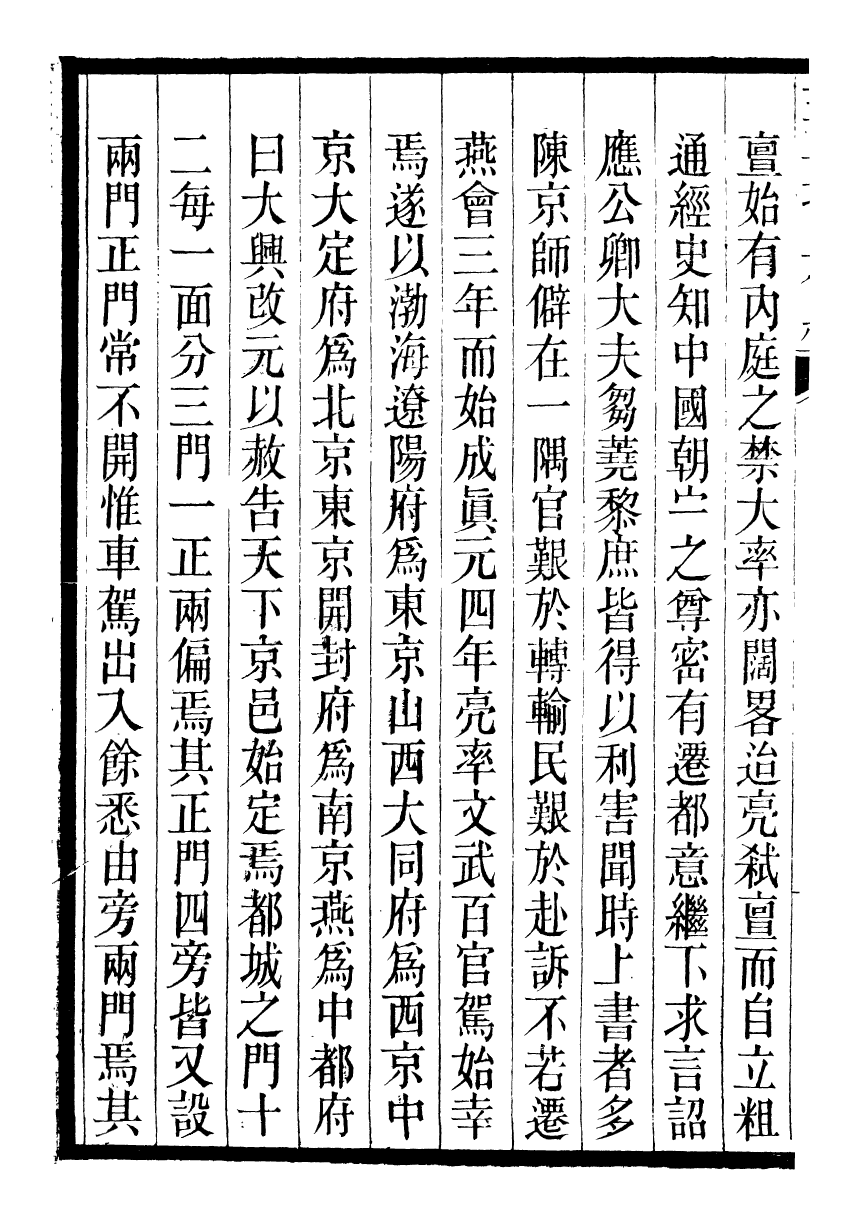 亶始有內庭之禁大率亦闊畧迨亮弒亶而自立粗
通經史知中國朝㝉之尊密有遷都意繼下求言詔
應公卿大夫芻蕘黎庶皆得以利害聞時上書者多
陳京師僻在一隅官艱於轉輸民艱於赴訴不若遷
燕會三年而始成眞元四年亮率文武百官駕始幸
焉遂以渤海遼陽府爲東京山西大同府爲西京中
京大定府爲北京東京開封府爲南京燕爲中都府
曰大興改元以赦告天下京邑始定焉都城之門十
二每一面分三門一正兩偏焉其正門四旁皆又設
兩門正門常不開惟車駕出入餘悉由旁兩門焉其